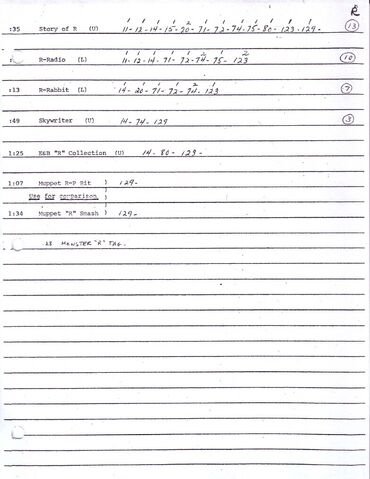 R
:35 Story of R (U) 11-12-14-15-20-71-72-74-75-80-123-129- 13
R-Radio (L) 11-12-14-71-72-74-75-123 10
:13 R-Rabbit (L) 14-20-71-72-74-123 7
:49 Skywriter (U) 14-74-129 3
1:25 E&B "R" Collection (U) 14-80-123-
1:07 Muppet R-P Bit ) 129-
Use for comparison. )
1:34 Muppet "R" Smash ) 129-
AS MONSTER "R" TAG.